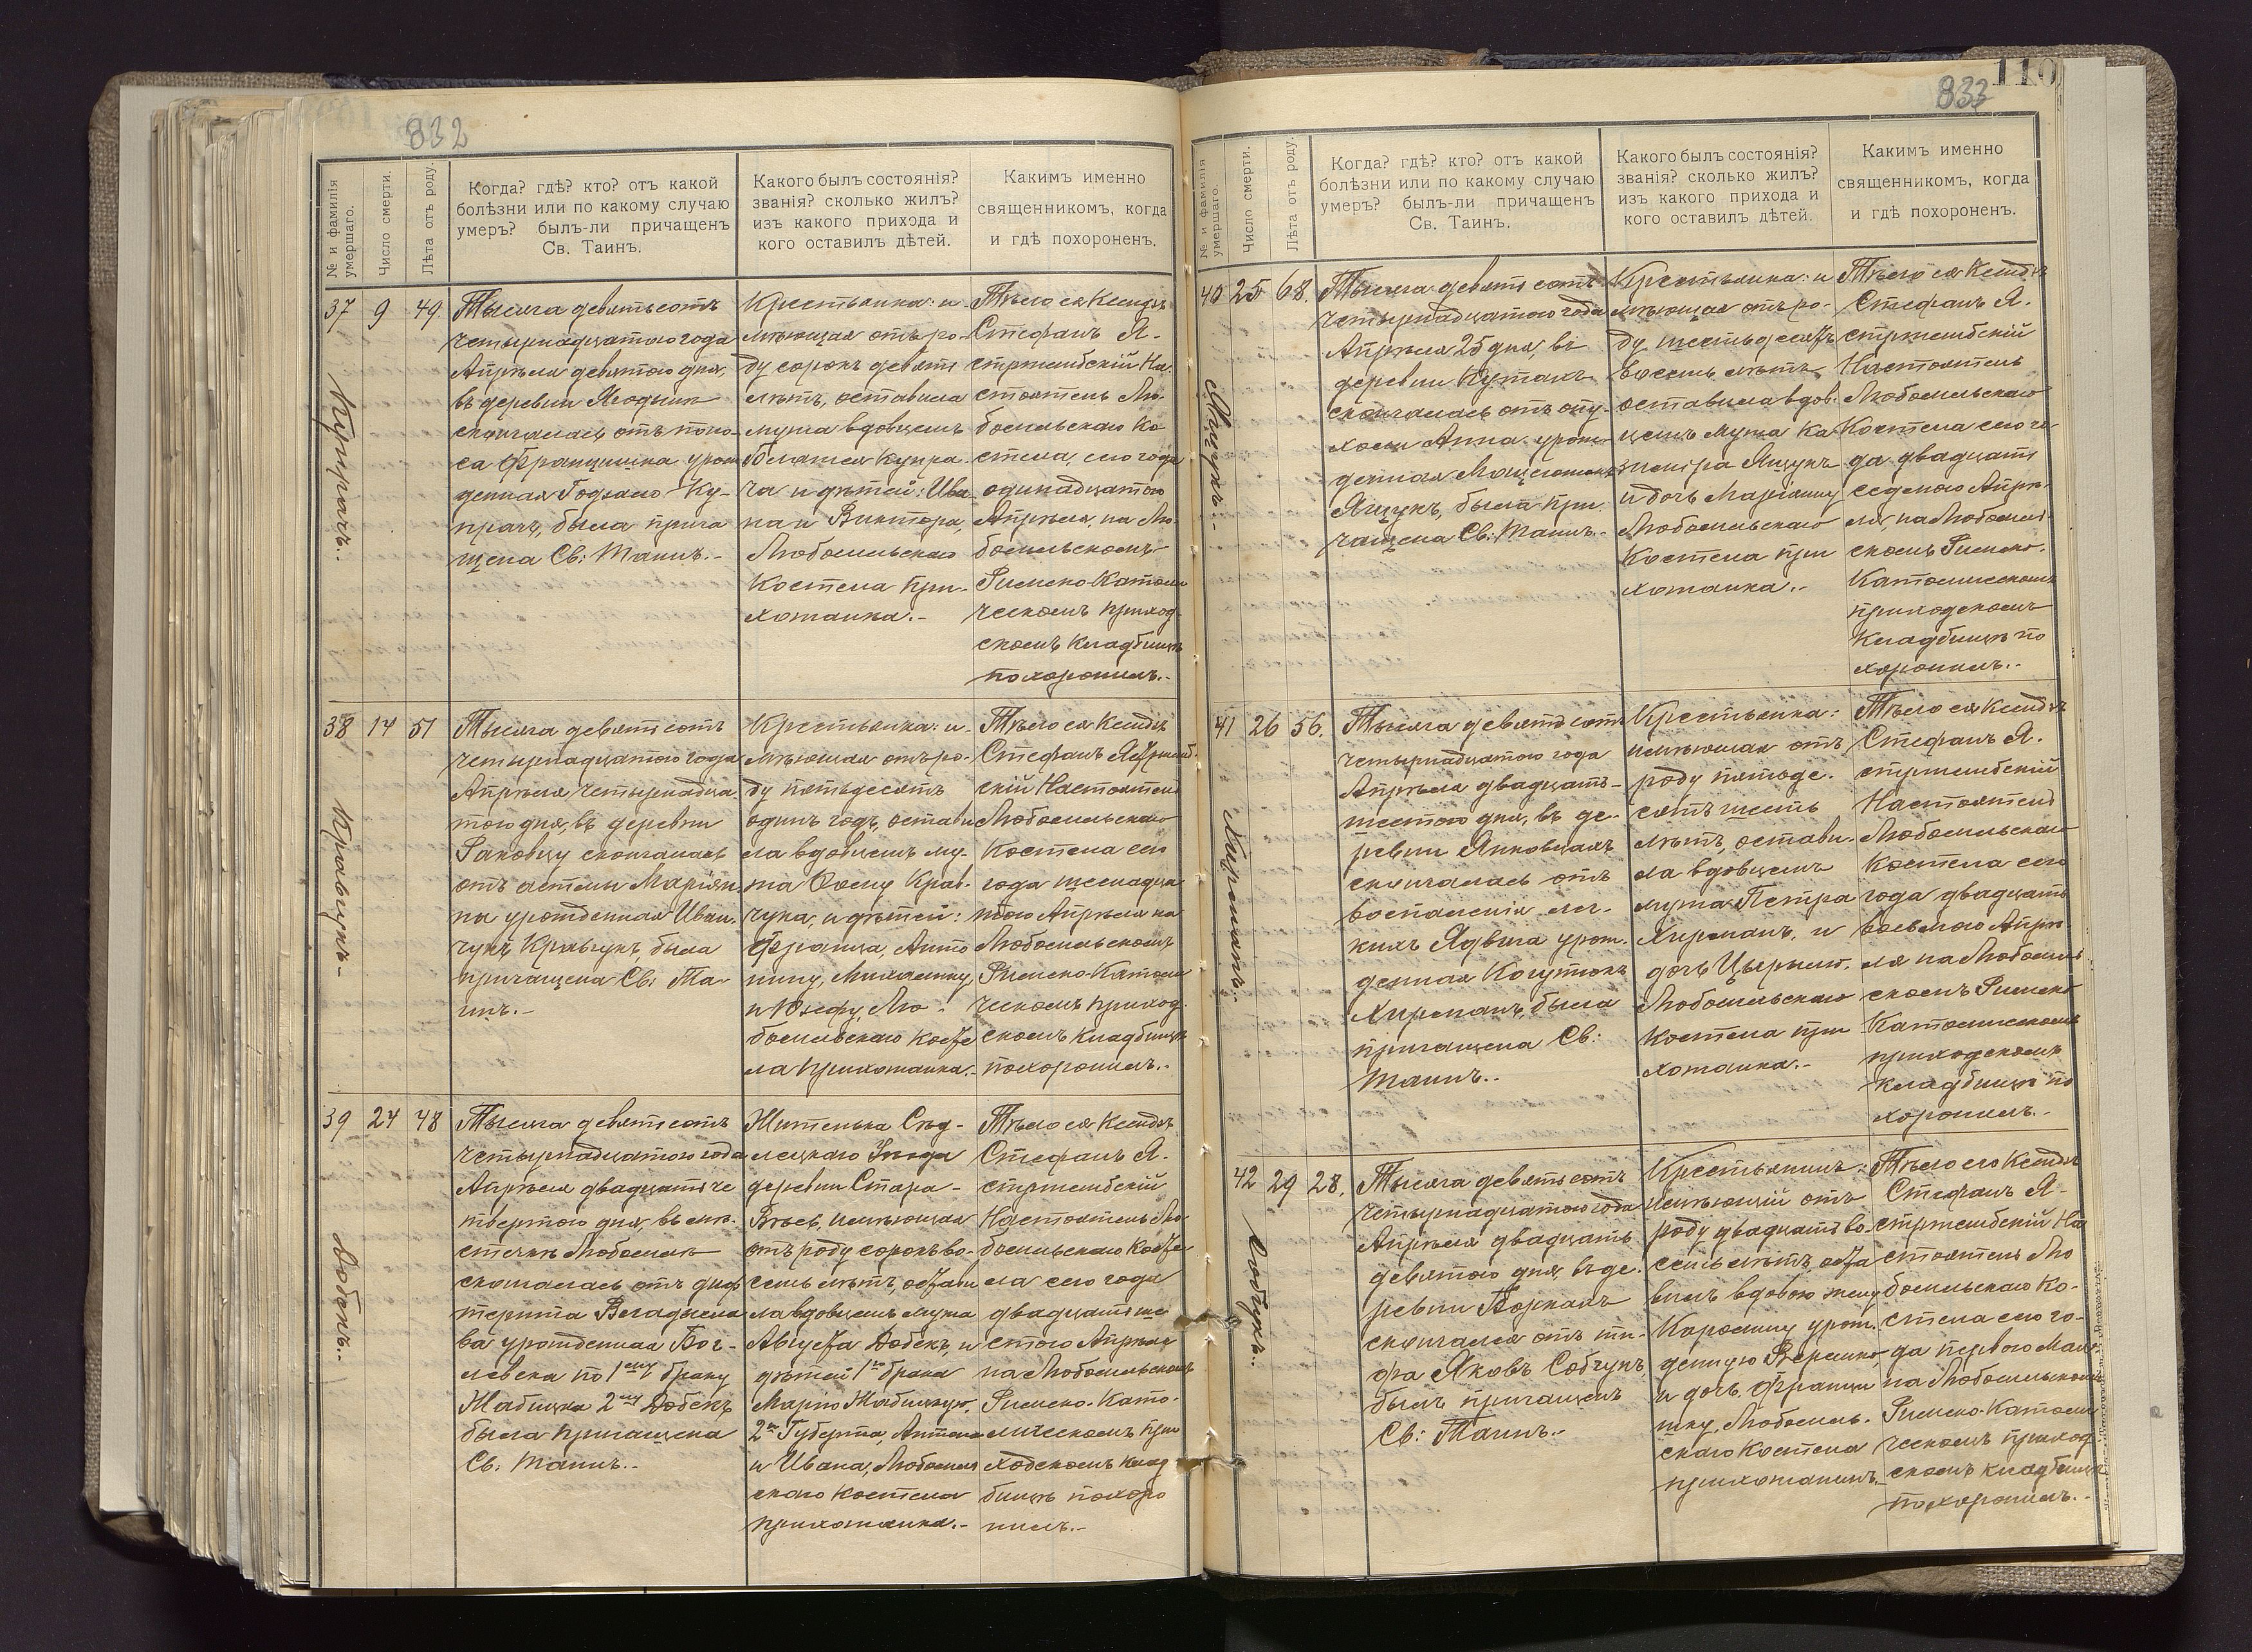 832
№ и фамилія умершаго.
Число смерти.
Лѣта отъ роду.
Когда? гдѣ? кто? отъ какой
болѣзни или по какому случаю
умеръ? былъ-ли причащенъ
Св. Таинъ.
Какого былъ состоянія?
званія? сколько жилъ?
изъ какого прихода и
кого оставилъ дѣтей.
Какимъ именно
священникомъ, когда
и гдѣ похороненъ.
37 9 49.
Купрачъ.
Тысяча девятьсотъ
четырнадцатого года
Апрѣля девятого дня,
въ деревни Ягодынѣ
скончалась отъ поно-
са Францишка урож
денная Годлево Ку-
прачъ, была прича
щена Св: Таинъ.-
Крестьянка: и
мѣющая отъ ро-
ду сорокъ девять
лѣтъ, оставила
мужа вдовцемъ
Купра-
ча и дѣтей: Ива
на и Виктора,
Любомльскаго
Костела при-
хожанка.-
Тѣло ея Ксендзъ
Стефанъ Я-
стржембскій На-
стоятель Лю-
бомльскаго Ко
стела, сего года
одинадцатого
Апрѣля, на Лю-
бомльскомъ
Римско-Католи
ческомъ приход-
скомъ кладбищѣ
похоронилъ.-
38 14 51
Кравчукъ-
Тысяча девятьсотъ
четырнадцатого года
Апрѣля четырнадца
того дня, въ деревни
Раковцу скончалась
отъ астмы Маріян-
на урожденная Иван-
чукъ Кравчукъ, была
причащена Св: Та-
инъ.-
Крестьянка: и-
мѣющая отъ ро-
ду пятьдесятъ
одинъ годъ, остави
ла вдовцемъ му-
жа Крав-
чука, и дѣтей:
Франца, Анто
нину, Михалину,
и Юзефу, Лю-
бомльскаго косте
ла прихожанка.-
Тѣло ея Ксендзъ
Стефанъ Ястржемб-
скій Настоятель
Любомльскаго
Костела сего
года шеснадца
того Апрѣля на
Любомльскомъ
Римско-Католи
ческомъ приход-
скомъ кладбищѣ
похоронилъ.-
39 24 48
Добекъ.-
Тысяча девятьсотъ
четырнадцатого года
Апрѣля двадцать че
твертого дня, въ мѣ-
стечкѣ Любомлѣ
скончалась отъ диф
терита Владысла
ва урожденная Бог-
левска по 1ему браку
Жабицка 2му Добекъ
была причащена
Св: Таинъ.-
Жителька Сѣд-
лецкаго Уѣзда
деревни Стара-
Весь, имѣющая
отъ роду сорокъ во-
семь лѣтъ, остави
ла вдовцемъ мужа
Августа Добекъ, и
дѣтей 1го брака
Марію Жабицкую,
2го Губерта, Антона
и Ивана, Любомль
скаго Костела
прихожанка.-
Тѣло ея Ксендзъ
Стефанъ Я-
стржембскій
Настоятель Лю-
бомльскаго косте
ла сего года
двадцать ше
стого Апрѣля
на Любомльскомъ
Римско-Като-
лическомъ при
ходскомъ клад
бищѣ похоро
нилъ.-
833
110
№ и фамилія умершаго.
Число смерти.
Лѣта отъ роду.
Когда? гдѣ? кто? отъ какой
болѣзни или по какому случаю
умеръ? былъ-ли причащенъ
Св. Таинъ.
Какого былъ состоянія?
званія? сколько жилъ?
изъ какого прихода и
кого оставилъ дѣтей.
Какимъ именно
священникомъ, когда
и гдѣ похороненъ.
40 25 68.
Ящукъ.-
Тысяча девятьсотъ
четырнадцатого года
Апрѣля 25 дня, въ
деревни Кутахъ
скончалась отъ опу-
холи Анна урож-
денная
Ящукъ, была при
чащена Св: Таинъ.-
Крестьянка: и
мѣющая отъ ро-
ду шестьдесятъ
восемь лѣтъ
оставила вдов-
цемъ мужа Ка-
зимира Ящукъ
и дочь Маріянну
Любомльскаго
Костела при
хожанка.-
Тѣло ея Ксендзъ
Стефанъ Я-
стржембскій
Настоятель
Любомльскаго
Костела сего го-
да двадцать
седмого Апрѣ-
ля, на Любомль-
скомъ Римско-
Католическомъ
приходскомъ
кладбищѣ по
хоронилъ.-
41 26 56.
Хирманъ.-
Тысяча девятьсотъ
четырнадцатого года
Апрѣля двадцать-
шестого дня, въ де-
ревни Янковцахъ
скончалась отъ
воспаленія лег-
кихъ Ядвига урож-
денная Когутюкъ
Хирманъ, была
причащена Св:
Таинъ.-
Крестьянка:
имѣющая отъ
роду пятьде-
сятъ шесть
лѣтъ, остави-
ла вдовцемъ
мужа Петра
Хирманъ, и
дочь
Любомльскаго
Костела при
хожанка.-
Тѣло ея Ксендзъ
Стефанъ Я-
стржембскій
Настоятель
Любомльскаго
Костела сего
года двадцать
восьмого Апрѣ
ля на Любомль
скомъ Римско
Католическомъ
приходскомъ
кладбищѣ по
хоронилъ.-
42 29 28.
Собчукъ.-
Тысяча девятьсотъ
четырнадцатого года
Апрѣля двадцать
девятого дня, въ де-
ревни Боркахъ
скончался отъ ти-
фа Яковъ Собчукъ,
былъ причащенъ
Св: Таинъ.-
Крестьянинъ:
имѣющій отъ
роду двадцать во-
семь лѣтъ, оста
вилъ вдовою жену
Каролину урож-
денную Веремко,
и дочь Франци
шку, Любомль-
скаго Костела
прихожанинъ.-
Тѣло его Ксендзъ
Стефанъ Я-
стржембскій На
стоятель Лю
бомльскаго Ко-
стела сего го-
да первого Мая
на Любомльскомъ
Римско-Католи
ческомъ приход-
скомъ кладбищѣ
похоронилъ.-